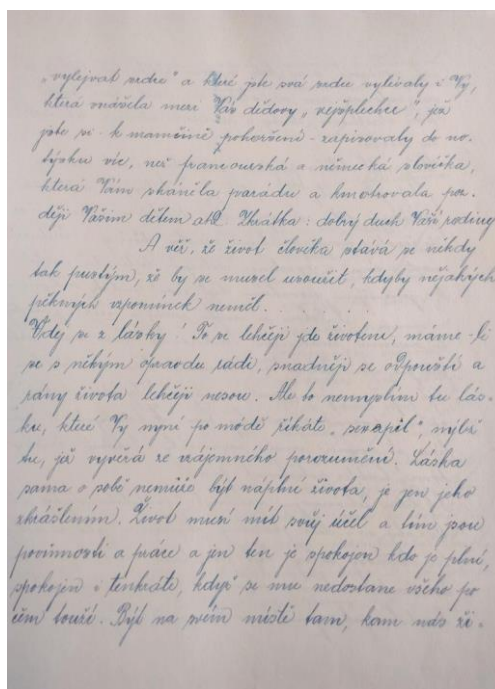 „vylejvat srdce" a které jste svá srdce vylévaly i Vy,
která snášela mezi Vás dědovy „vejšplechce", jež
jste si - k mamčině pohoršení - zapisovaly do no-
týsku víc, než francouzská a německá slovíčka,
která Vám sháněla parádu a kmotrovala poz-
ději Vašim dětem atd. Zkrátka: dobrý duch Vaší rodiny
A věř, že život člověka stává se někdy
tak pustým, že by se musel usoužit, kdyby nějakých
pěkných vzpomínek neměl.
Vdej se z lásky! To se lehčeji jde životem, máme-li
se s někým opravdu rádi, snadněji se odpouští a
rány života lehčeji nesou. Ale to nemyslím tu lás-
ku, které Vy nyní po módě říkáte „sexapil", nýbrž
tu, jež vyvěrá ze vzájemného porozumění. Láska
sama o sobě nemůže být náplní života, je jen jeho
zkrášlením. Život musí mít svůj účel a tím jsou
povinnosti a práce a jen ten je spokojen kdo je plní,
spokojen i tenkráte, když se mu nedostane všeho po
čem touží. Být na svém místě tam, kam nás ži-